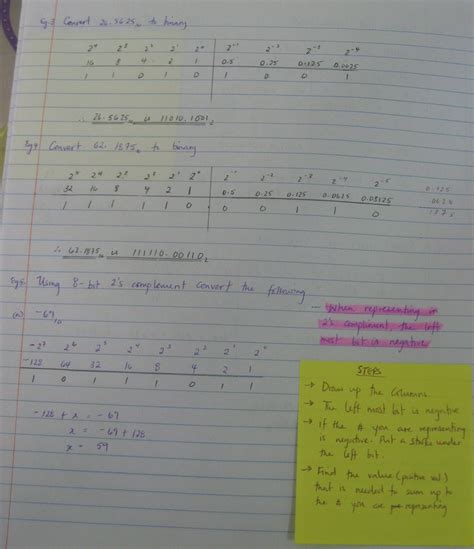 Eg 3 Convert 26.5625₁₀ to binary
2⁴ 2³ 2² 2¹ 2⁰ 2⁻¹ 2⁻² 2⁻³ 2⁻⁴
16 8 4 2 1 0.5 0.25 0.125 0.0625
1 1 0 1 0 1 0 0 1
∴ 26.5625₁₀ is 11010.1001₂
Eg 4 Convert 62.1875₁₀ to binary
2⁴ 2³ 2² 2¹ 2⁰ 2⁻¹ 2⁻² 2⁻³ 2⁻⁴ 2⁻⁵
32 16 8 4 2 1 0.5 0.25 0.125 0.0625 0.03125
1 1 1 1 1 0 0 0 1 1 0
∴ 62.1875₁₀ is 111110.00110₂
Eg 5 Using 8-bit 2's complement convert the following
(a) -69₁₀
When representing in
2's complement, the left
most bit is negative
2⁶ 2⁵ 2⁴ 2³ 2² 2¹ 2⁰
-128 64 32 16 8 4 2 1
1 0 1 1 1 0 1 1
-128 + x = -69
x = -69 + 128
x = 59
STEPS
→ Draw up the columns
→ The left most bit is negative
→ if the # you are representing
is negative. Put a stroke under
the left bit.
→ Find the value (positive val)
that is needed to sum up to
the # you are representing